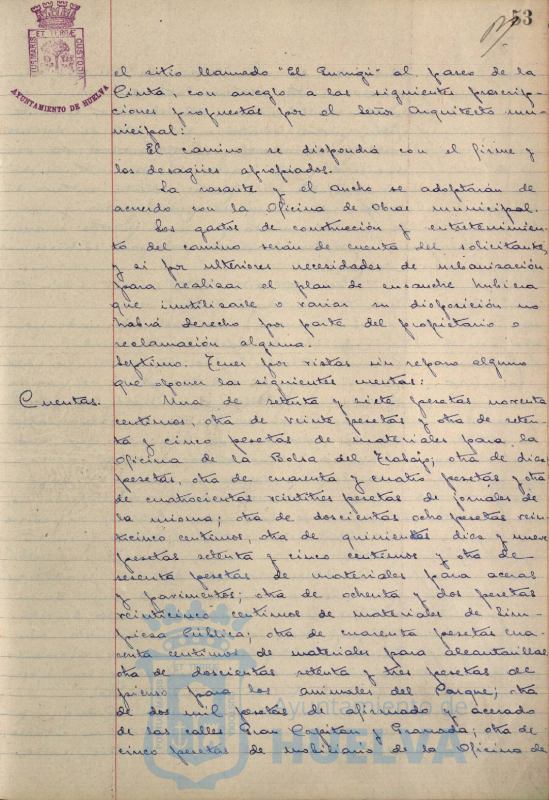 53
PORTUS MARIS ET TERRÆ CUSTODIA
AYUNTAMIENTO DE HUELVA
el sitio llamado "El" al paseo de la
Cinta, con arreglo a las siguientes prescrip-
ciones propuestas por el Señor Arquitecto mu-
nicipal:
El camino se dispondrá con el firme y
los desagües apropiados.
La rasante y el ancho se adoptarán de
acuerdo con la Oficina de Obras municipal.
Los gastos de construcción y entretenimien-
to del camino serán de cuenta del solicitante,
y si por ulteriores necesidades de urbanización
para realizar el plan de ensanche hubiera
que inutilizarle o variar su disposición no
habrá derecho por parte del propietario a
reclamación alguna.
Septimo. Tener por vistas sin reparo alguno
que oponer las siguientes cuentas:
Cuentas.
Una de setenta y siete pesetas noventa
centimos, otra de veinte pesetas y otra de seten-
ta y cinco pesetas de materiales para la
Oficina de la Bolsa del Trabajo; otra de diez
pesetas, otra de cuarenta y cuatro pesetas y otra
de cuatrocientas veintitrés pesetas de jornales de
la misma; otra de doscientas ocho pesetas vein-
ticinco centimos, otra de quinientas diez y nueve
pesetas setenta y cinco centimos y otra de
sesenta pesetas de materiales para aceras
y pavimentos; otra de ochenta y dos pesetas
veinticinco centimos de materiales de Lim-
pieza Pública; otra de cuarenta pesetas cua-
renta centimos de materiales para alcantarillas
otra de doscientas setenta y tres pesetas de
pienso para los animales del Parque; otra
de dos mil pesetas de afirmado y acerado
de las calles Gran Capitan y Granada; otra de
cinco pesetas de mobiliario de la Oficina de
Ayuntamiento de
HUELVA